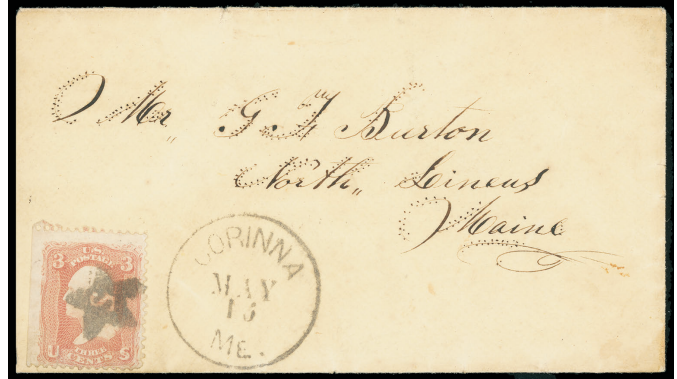 Mr G. F. Burton
North Lineus
Maine
CORINNA
MAY
15
ME.
U.S.
POSTAGE
3 3
THREE
U CENTS S